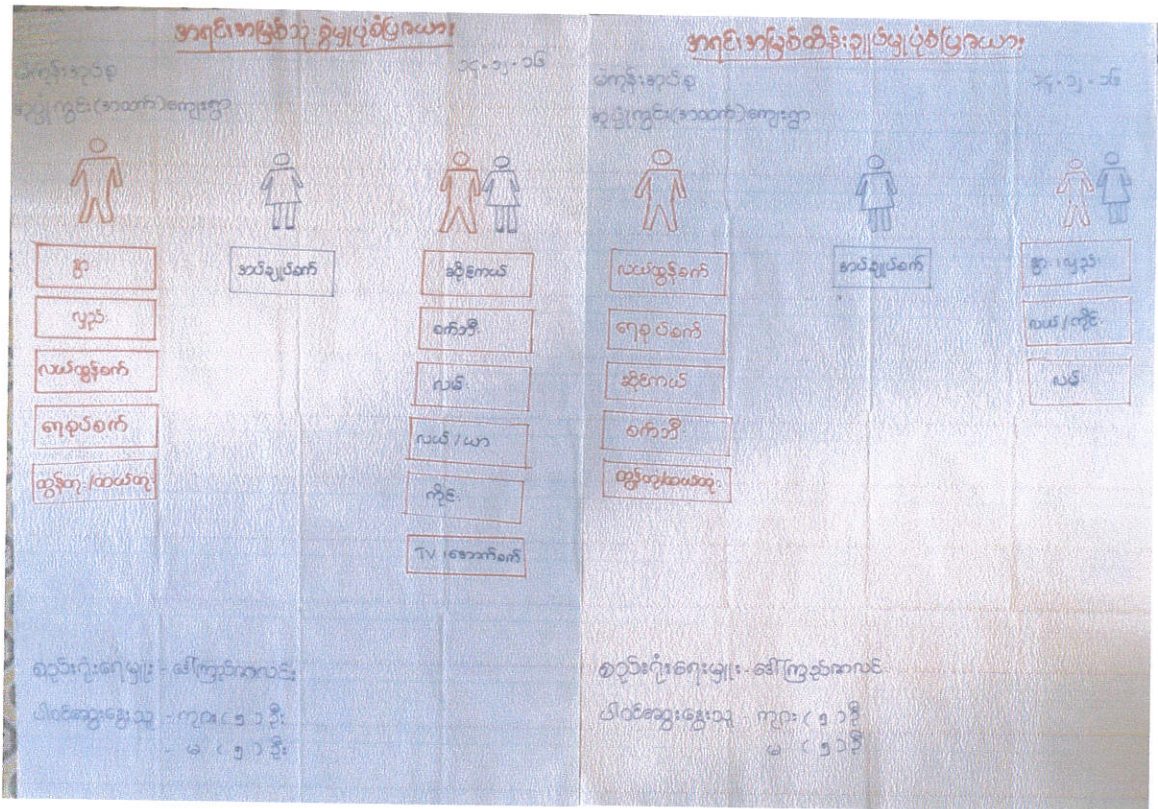 အရင်းအမြစ်သုံးစွဲမှုပုံစံပြဇယား
မဲကုန်းအုပ်စု
၁၄-၁၂-၁၆
(အထက်)ကျေးရွာ
နွား
လှည်း
လယ်ထွန်စက်
ရေစုပ်စက်
ထွန်တုံး/ထယ်တုံး
အပ်ချုပ်စက်
ဆိုင်ကယ်
စက်ဘီး
လမ်း
လယ်/ယာ
ကိုင်း
TV၊အောက်စက်
စည်းရုံးရေးမှူး - ဒေါ်ကြည်စာလင်း
ပါဝင်ဆွေးနွေးသူ - ကျား (၅) ဦး
- မ (၅) ဦး
အရင်းအမြစ်ထိန်းချုပ်မှုပုံစံပြဇယား
မဲကုန်းအုပ်စု
၁၄-၁၂-၁၆
(အထက်)ကျေးရွာ
လယ်ထွန်စက်
ရေစုပ်စက်
ဆိုင်ကယ်
စက်ဘီး
ထွန်တုံး/ထယ်တုံး
အပ်ချုပ်စက်
နွား၊လှည်း
လယ်/ကိုင်း
လမ်း
စည်းရုံးရေးမှူး - ဒေါ်ကြည်စာလင်း
ပါဝင်ဆွေးနွေးသူ - ကျား (၅) ဦး
မ (၅) ဦး